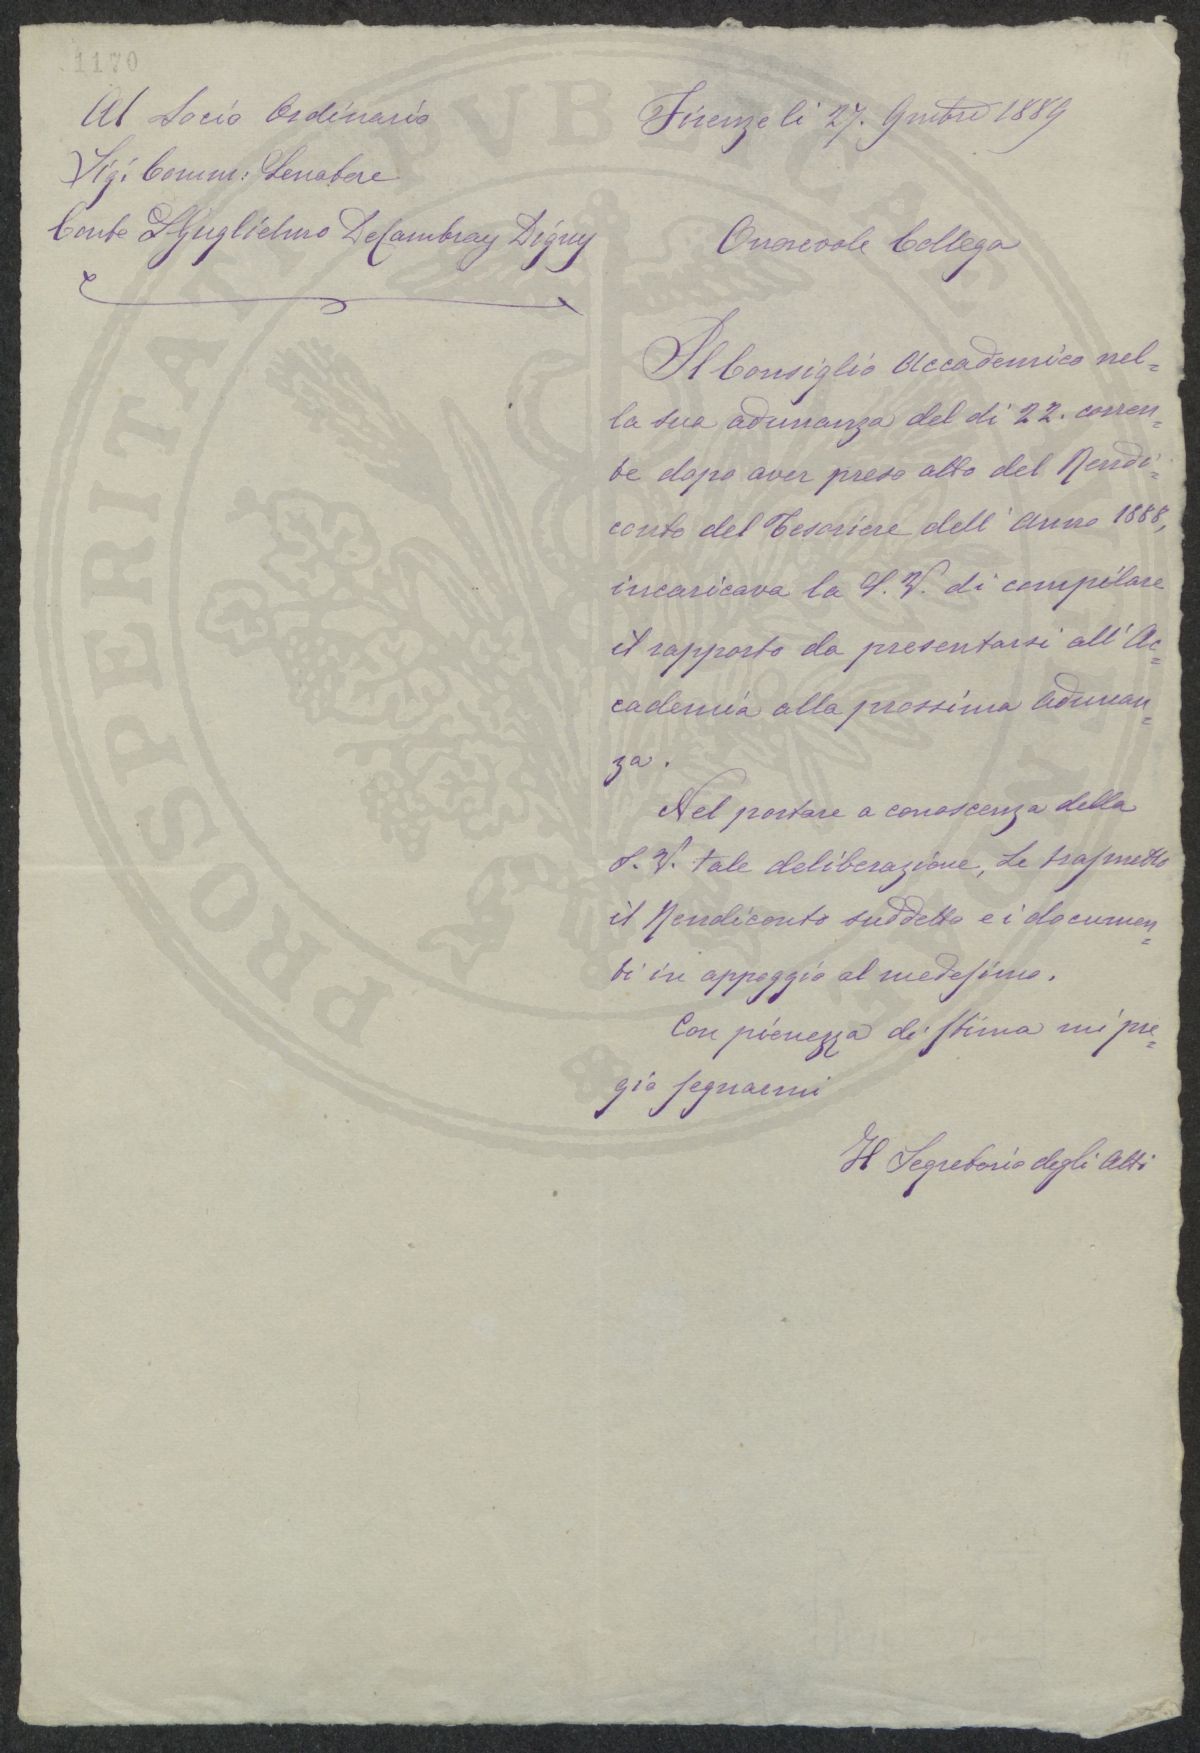 1170
Al Socio Ordinario
Sig: Comm: Senatore
Conte Guglielmo De Cambray Digny
Firenze li 27. 9mbre 1889
Onorevole Collega
Il Consiglio Accademico nel=
la sua adunanza del dì 22. corren=
te dopo aver preso atto del Rendi=
conto del Tesoriere dell' Anno 1888,
incaricava la S. V. di compilare
il rapporto da presentarsi all' Ac=
cademia alla prossima Adunan=
za.
Nel portare a conoscenza della
S. V. tale deliberazione, Le trasmetto
il Rendiconto suddetto e i documen=
ti in appoggio al medesimo.
Con pienezza di stima mi pre=
gio segnarmi
Il Segretario degli Atti
PROSPERITATI PVBLICAE